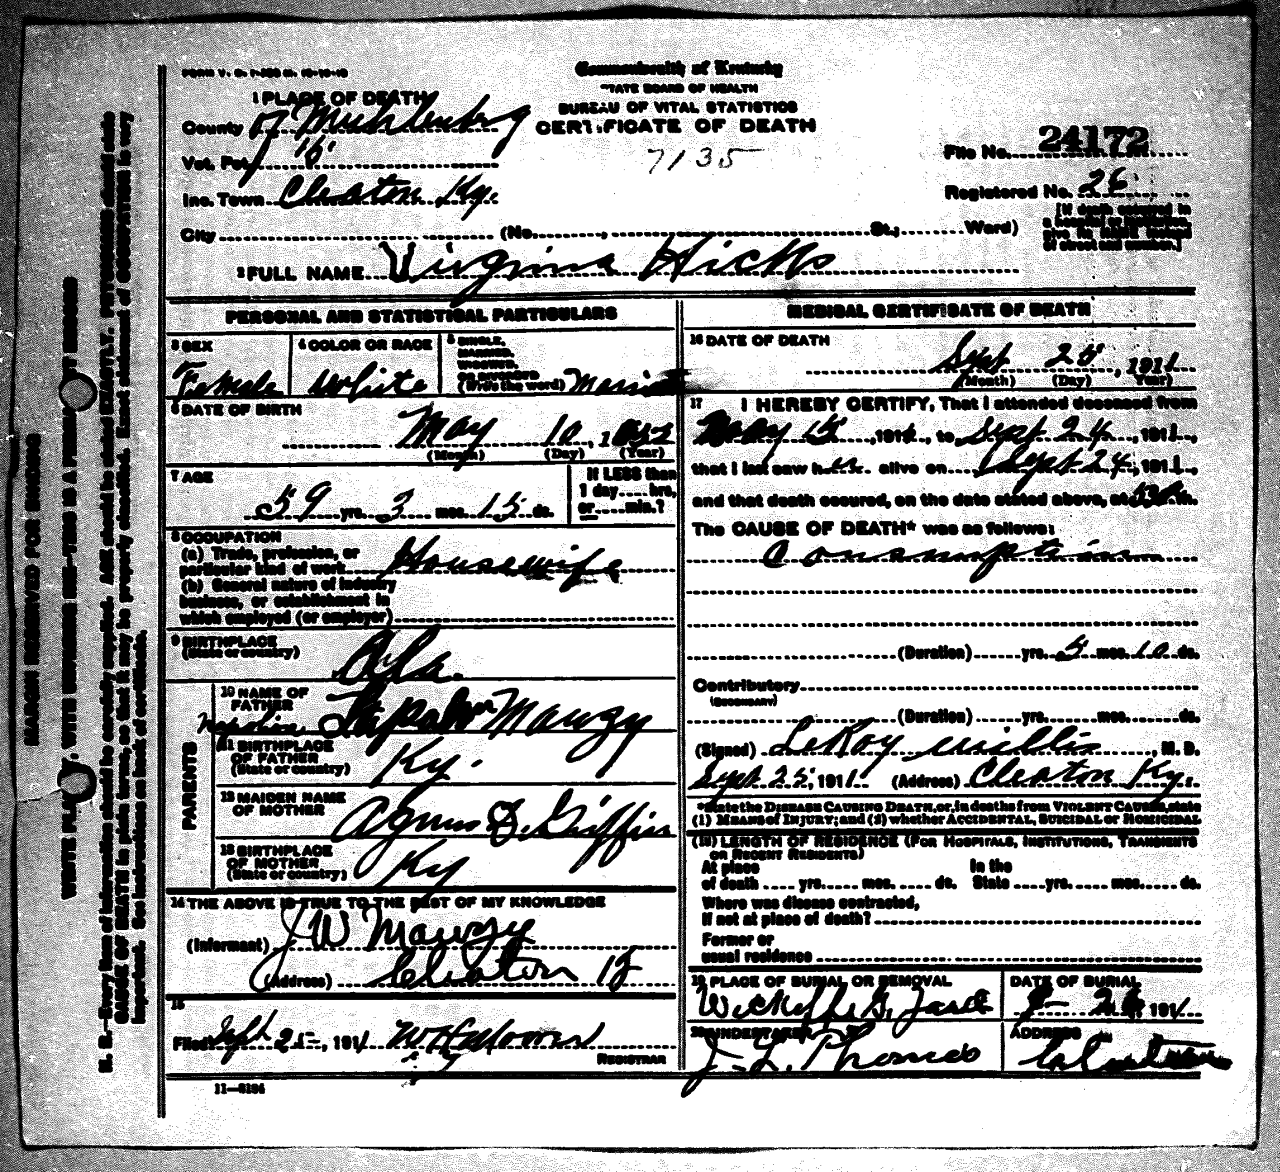 FORM V. S. 1-
Commonwealth of Kentucky
STATE BOARD OF HEALTH
BUREAU OF VITAL STATISTICS
CERTIFICATE OF DEATH
7135
1 PLACE OF DEATH
County of Muhlenberg
Vot. Pct.
Inc. Town Cleaton Ky.
City (No. , St.; Ward)
File No. 24172
Registered No. 26
[If death occurred in a hospital or institution, give its NAME instead of street and number.]
2 FULL NAME Virginia Hicks
PERSONAL AND STATISTICAL PARTICULARS
3 SEX
Female
4 COLOR OR RACE
White
5 SINGLE, MARRIED, WIDOWED, OR DIVORCED (Write the word) Married
6 DATE OF BIRTH
May 10, 1
(Month) (Day) (Year)
7 AGE
59 yrs. 3 mos. 15 ds.
If LESS than 1 day.... hrs, or .... min.?
8 OCCUPATION
(a) Trade, profession, or particular kind of work Housewife
(b) General nature of industry business, or establishment in which employed (or employer)
9 BIRTHPLACE
(State or country)
Ala.
PARENTS
10 NAME OF FATHER
Mauzy
11 BIRTHPLACE OF FATHER
(State or country)
Ky.
12 MAIDEN NAME OF MOTHER
Agnus Griffin
13 BIRTHPLACE OF MOTHER
(State or country)
Ky
14 THE ABOVE IS TRUE TO THE BEST OF MY KNOWLEDGE
(Informant) J W Mauzy
(Address) Cleaton Ky
15
Filed Sept 25, 1911
REGISTRAR
11—6184
MEDICAL CERTIFICATE OF DEATH
16 DATE OF DEATH
Sept 25, 1911
(Month) (Day) (Year)
17 I HEREBY CERTIFY, That I attended deceased from
May 15, 1911, to Sept 24, 1911,
that I last saw her alive on Sept 24, 1911,
and that death occured, on the date stated above, at m.
The CAUSE OF DEATH* was as follows:
Consumption
(Duration) yrs. 5 mos. 10 ds.
Contributory
(SECONDARY)
(Duration) yrs. mos. ds.
(Signed) LeRoy Willis, M. D.
Sept 25, 1911 (Address) Cleaton Ky.
*State the DISEASE CAUSING DEATH, or, in deaths from VIOLENT CAUSES, state
(1) MEANS of INJURY; and (2) whether ACCIDENTAL, SUICIDAL or HOMICIDAL
(18) LENGTH OF RESIDENCE (FOR HOSPITALS, INSTITUTIONS, TRANSIENTS OR RECENT RESIDENTS)
At place of death .... yrs. .... mos. .... ds. In the State .... yrs. .... mos. .... ds.
Where was disease contracted, if not at place of death?
Former or usual residence
19 PLACE OF BURIAL OR REMOVAL
DATE OF BURIAL
9- 26, 1911
20 UNDERTAKER
J. L. Thomas
ADDRESS
Cleaton
MARGIN RESERVED FOR BINDING
WRITE PLAINLY, WITH UNFADING INK—THIS IS A PERMANENT RECORD
N. B.—Every item of information should be carefully supplied. AGE should be stated EXACTLY. PHYSICIANS should state
CAUSE OF DEATH in plain terms, so that it may be properly classified. Exact statement of OCCUPATION is very
important. See instructions on back of certificate.